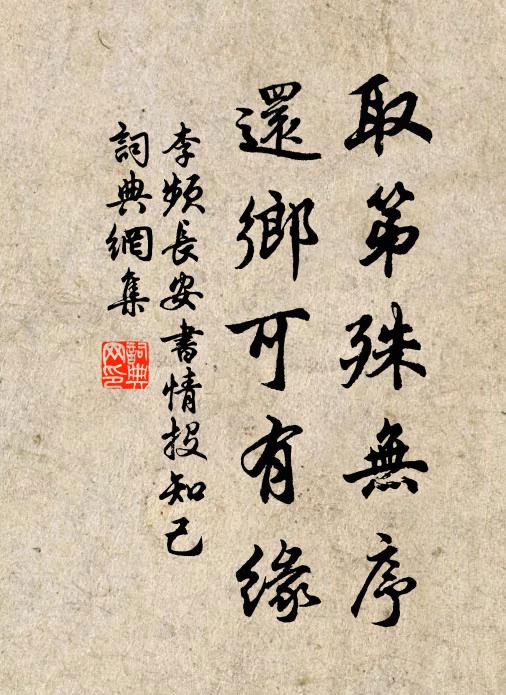 取第殊無序
還鄉可有緣
李頻長安書情投知己
詞典網集
詞典網印